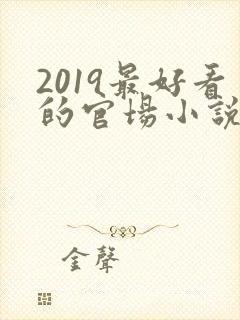 2019最好看
的官場小説
金聲